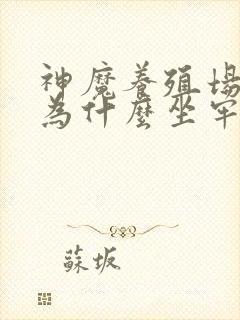 神魔養殖場
為什麼坐牢
蘇坂